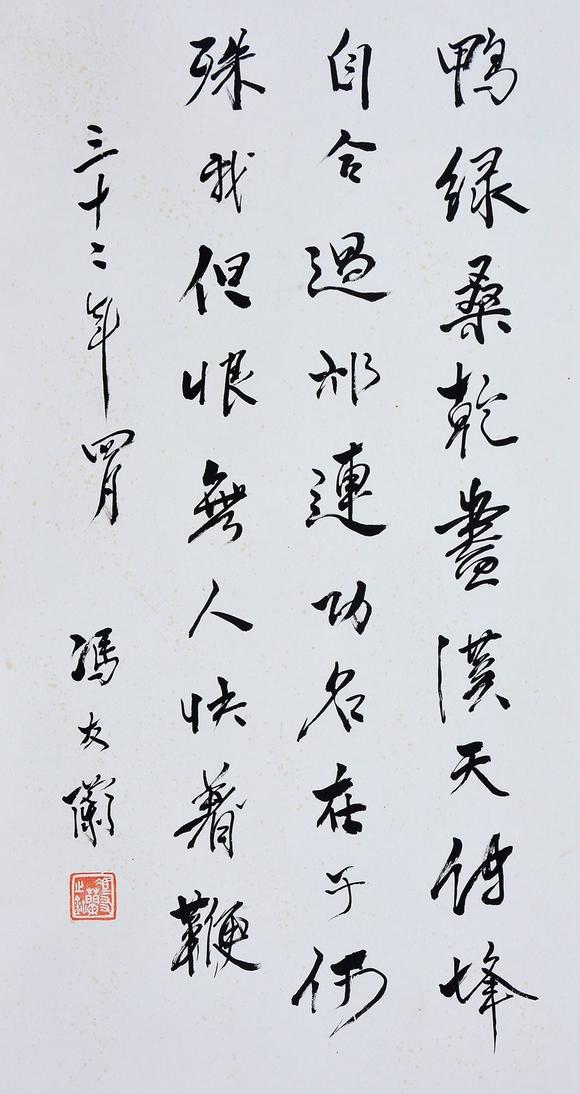 鴨綠桑乾盡漢天傳烽
自合過祁連功名在子何
殊我但恨無人快着鞭
三十二年四月 馮友蘭